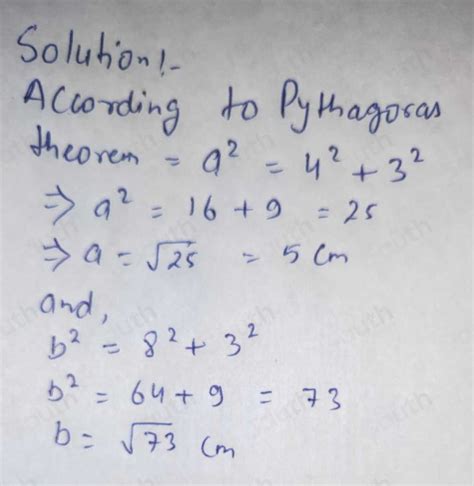 Solution!-
According to Pythagoras
theorem = a² = 4² + 3²
⇒ a² = 16 + 9 = 25
⇒ a = √25 = 5 cm
and,
b² = 8² + 3²
b² = 64 + 9 = 73
b = √73 cm